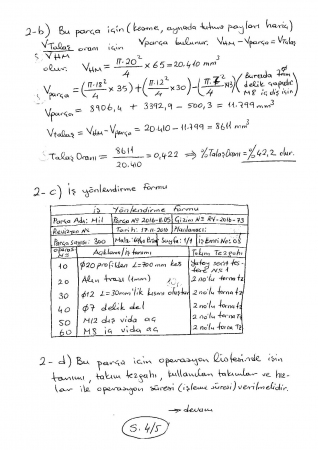 2-b) Bu parça için (kesme, aynada tutma payları hariç)
V_Talaş / V_HM oranı için V_parça bulunur. V_HM - V_parça = V_Talaş
olur. V_HM = π·20² / 4 × 65 = 20.410 mm³
V_parça = (π·18² / 4 × 35) + (π·12² / 4 × 30) - (π·7² / 4 ×13) (Burada 7mm delik çapıdır M8 iç diş için)
V_parça = 8906,4 + 3392,9 - 500,3 = 11.799 mm³
V_talaş = V_HM - V_parça = 20.410 - 11.799 = 8611 mm³
Talaş Oranı = 8611 / 20.410 = 0,422 ⇒ % Talaş Oranı = % 42,2 olur.
2-c) İş yönlendirme formu
İş Yönlendirme Formu
Parça Adı: Mil Parça Nº 2016-1605 Çizim Nº
Revizyon Nº Tarih: 17-11-2016 Hazırlayan:
Parça Sayısı: 300 Malz. Sayfa: 1/1 İş Emri No: 05
Operasyon Nº Açıklama/iş tanımı Takım Tezgahı
10 Ø20 profilden L=700mm kes testere Nº 1
20 Alın tornası (1mm) 2 no'lu torna Tz
30 Ø12 L=30mm'lik kısmı oluştur 2 no'lu torna Tz
40 Ø7 delik del 2 no'lu torna Tz
50 M12 dış vida aç 2 no'lu torna Tz
60 M8 iç vida aç 2 no'lu torna Tz
2-d) Bu parça için operasyon listesinde işin
tanımı, takım tezgahı, kullanılan takımlar ve hız-
lar ile operasyon süresi (işleme süresi) verilmelidir.
→ devamı
S. 4/5